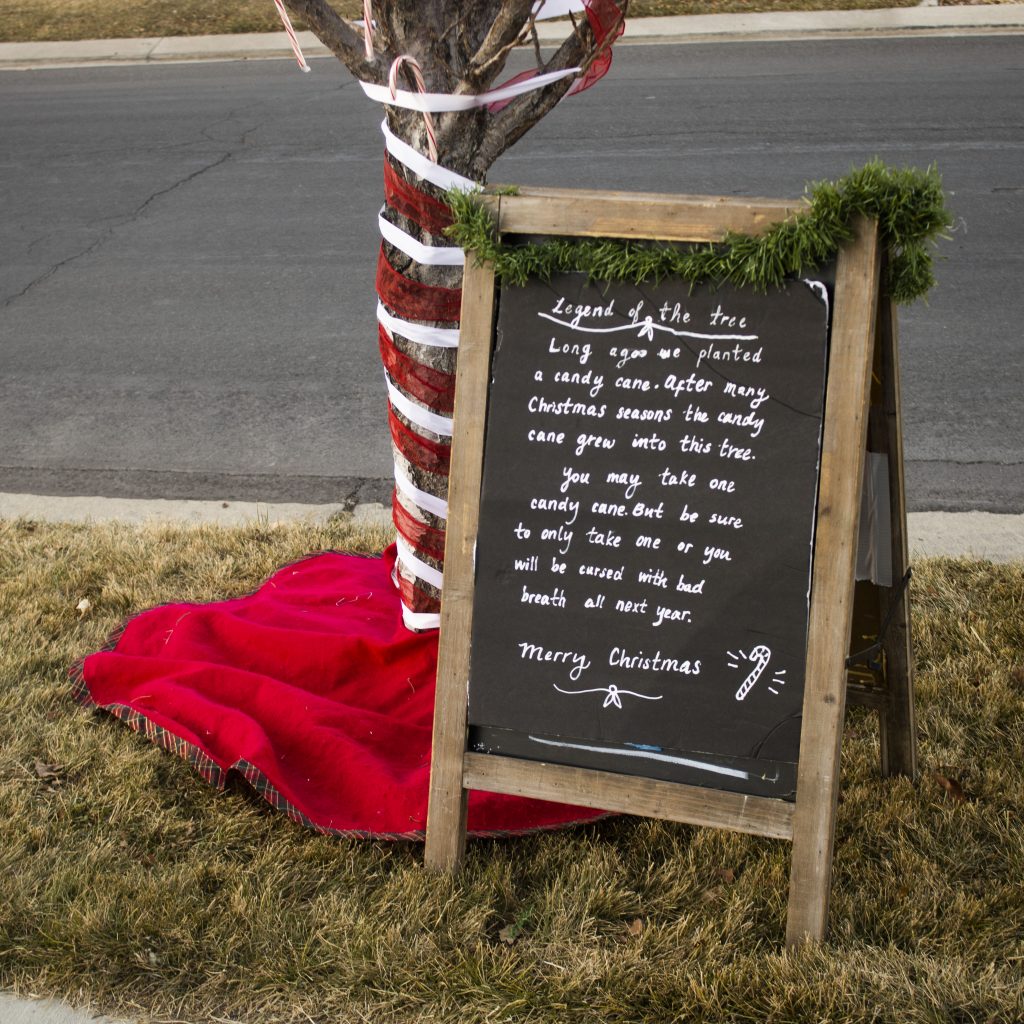 Legend of the tree
Long ago we planted
a candy cane. After many
Christmas seasons the candy
cane grew into this tree.
You may take one
candy cane. But be sure
to only take one or you
will be cursed with bad
breath all next year.
Merry Christmas